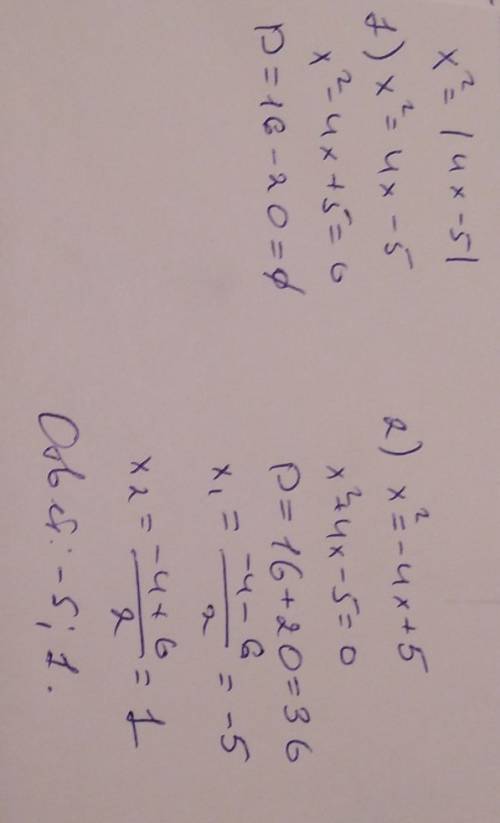 x² = |4x-5|
1) x² = 4x - 5
x² - 4x + 5 = 0
D = 16 - 20 = ∅
2) x² = -4x + 5
x² + 4x - 5 = 0
D = 16 + 20 = 36
x₁ = \frac{-4-6}{2} = -5
x₂ = \frac{-4+6}{2} = 1
Ответ: -5; 1.